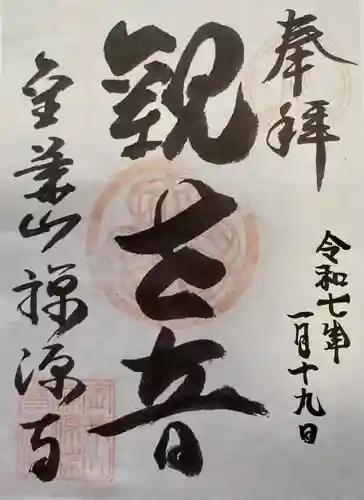 奉拝
令和七年
一月十九日
観世音
金華山禅源寺